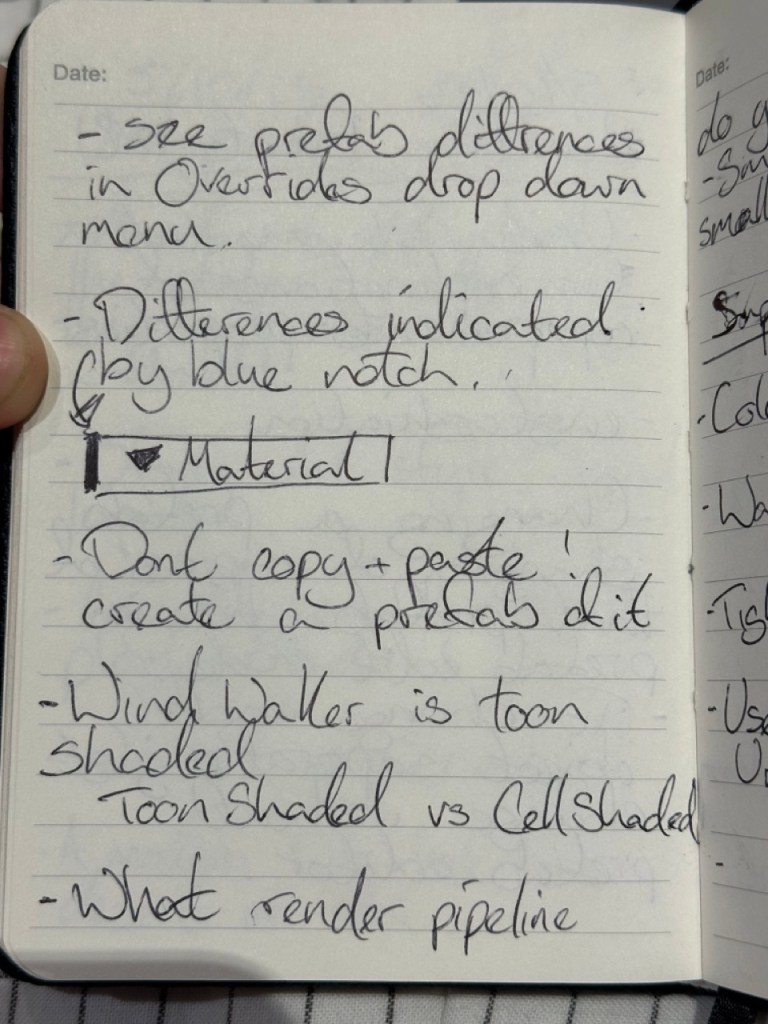 Date:
- see prefab differences
in Overrides drop down
menu.
- Differences indicated
by blue notch.
▼ Material
- Dont copy + paste!
create a prefab of it
- Wind Waker is toon
shaded
Toon Shaded vs Cell Shaded
- What render pipeline
Date:
do
small